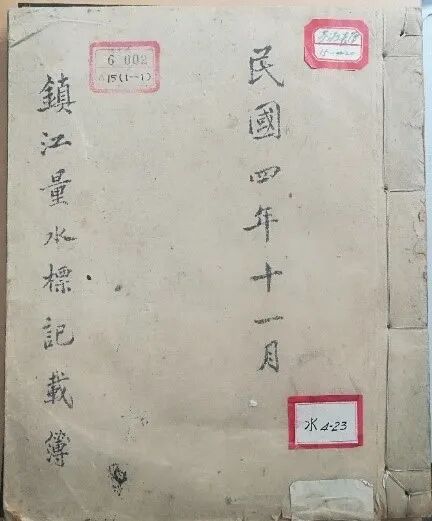 民國四年十一月
鎮江量水標記載簿
6 002
15(1-1)
水 4-23